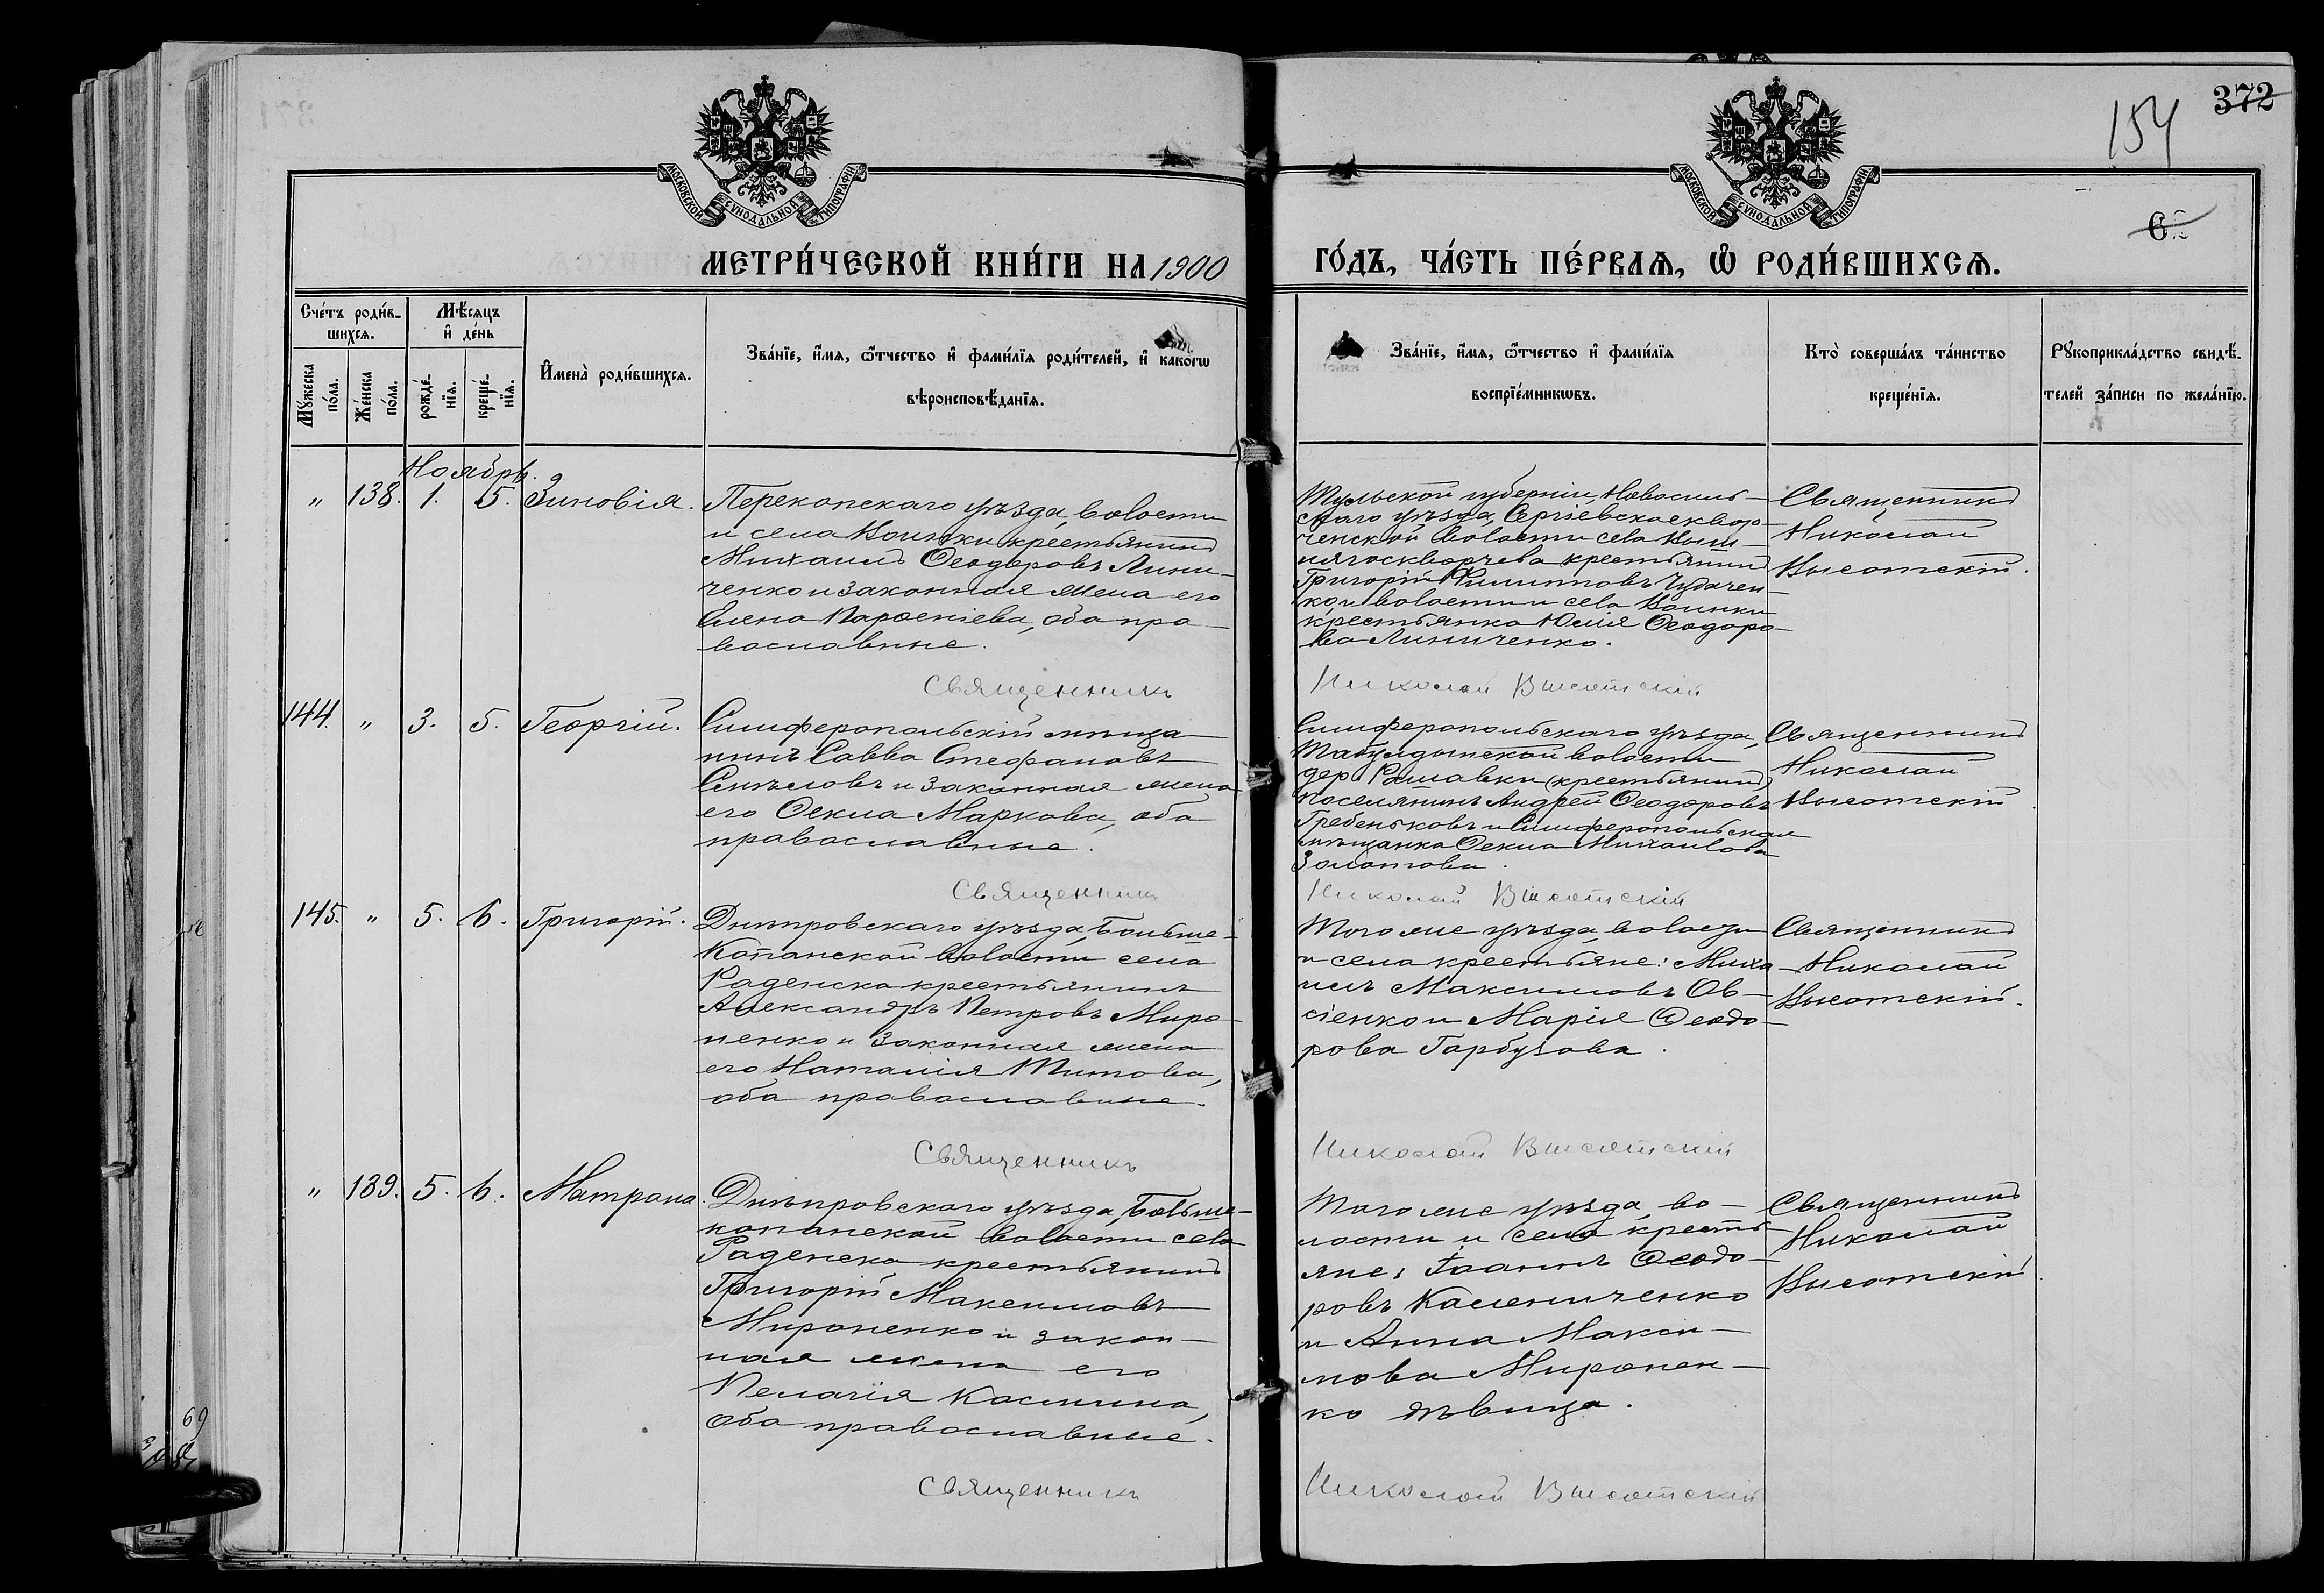 372
154
6
МОСКОВСКОЙ СѴНОДАЛЬНОЙ ТИПОГРАФІИ
МОСКОВСКОЙ СѴНОДАЛЬНОЙ ТИПОГРАФІИ
МЕТРИ́ЧЕСКОЙ КНИ́ГИ НА 1900 ГО́ДЪ, ЧА́СТЬ ПЕ́РВАѦ, Ѡ҆ РОДИ́ВШИХСѦ.
Сче́тъ роди́в-
шихсѧ.
Мꙋ́жеска по́ла.
Же́нска по́ла.
Мѣ́сѧцъ
и҆ де́нь
рожде́-
нїѧ.
креще́-
нїѧ.
И҆мена̀ роди́вшихсѧ.
Зва́нїе, и҆́мѧ, ѻ҆́тчество и҆ фами́лїѧ роди́телей, и҆ како́гѡ
вѣроисповѣ́данїѧ.
Зва́нїе, и҆́мѧ, ѻ҆́тчество и҆ фами́лїѧ
воспрїе́мникѡвъ.
Кто̀ соверша́лъ та́инство
креще́нїѧ.
Рꙋкоприкла́дство свидѣ́-
телей за́писи по жела́нїю.
Ноябрь.
„ 138. 1. 5. Зиновія.
Перекопскаго уѣзда, волости
и села Воинки крестьянинъ
Михаилъ Ѳеодоровъ Лини-
ченко и законная жена его
Елена Парѳеніева, оба пра-
вославные.
Тульской губерніи, Новосиль-
скаго уѣзда, Сергіевскосквор-
ченской волости села
крестьянинъ
Григорій Филипповъ
волости и села Воинки
крестьянка Юлія Ѳеодоро-
ва Линиченко.
Священникъ
Николай
Высотскій.
Священникъ Николай Высотскій
144. „ 3. 5. Георгій.
Симферопольскій мѣща-
нинъ Савва Стефановъ
Смѣловъ и законная жена
его Ѳекла Маркова, оба
православные.
Симферопольскаго уѣзда,
волости
дер. (крестьянинъ)
поселянинъ Андрей Ѳеодоровъ
Гребеньковъ и Симферопольская
мѣщанка Ѳекла Михаилова
Золотова.
Священникъ
Николай
Высотскій
Священникъ Николай Высотскій
145. „ 5. 6. Григорій.
Днѣпровскаго уѣзда, Больше-
Копанской волости села
Раденска крестьянинъ
Александръ Петровъ Миро-
ненко и законная жена
его Наталія Титова,
оба православные.
Того же уѣзда, волости
и села крестьяне: Миха-
илъ Максимовъ Ов-
сіенко и Марія Ѳеодо-
рова Гарбузова.
Священникъ
Николай
Высотскій.
Священникъ Николай Высотскій
„ 139. 5. 6. Матрона.
Днѣпровскаго уѣзда, Больше-
копанской волости села
Раденска крестьянинъ
Григорій Максимовъ
Мироненко и закон-
ная жена его
Пелагія Касмина,
оба православные.
Того же уѣзда, во-
лости и села кресть-
яне: Іоаннъ Ѳеодо-
ровъ Калениченко
и Анна Макси-
мова Миронен-
ко дѣвица.
Священникъ
Николай
Высотскій.
Священникъ Николай Высотскій
69